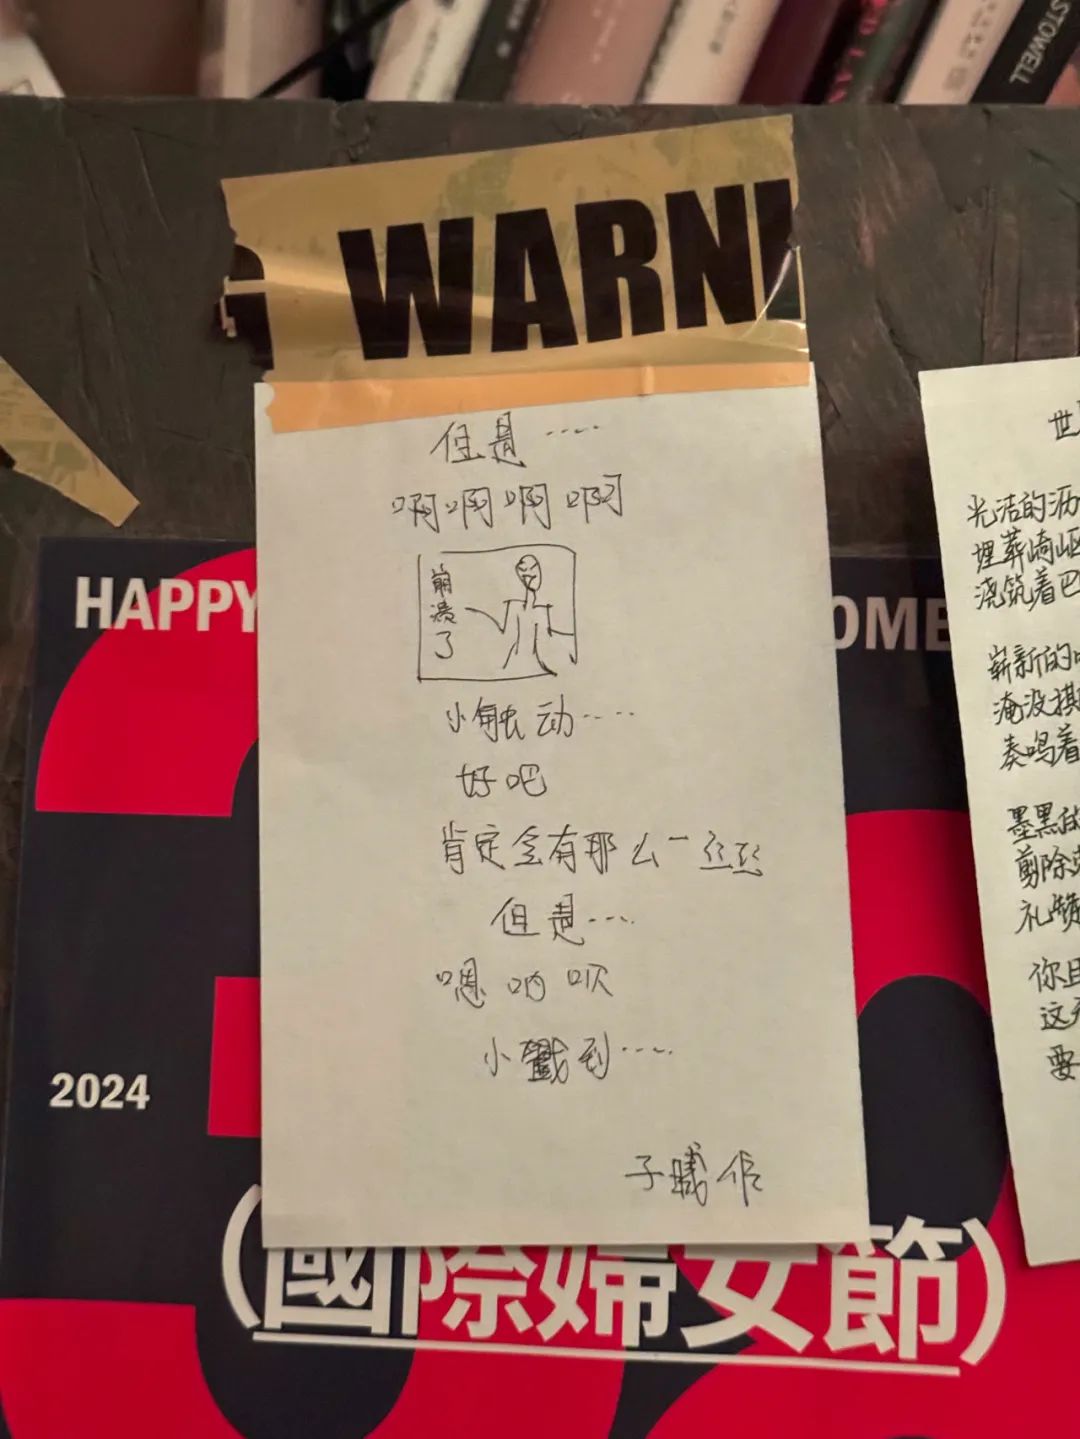 STOWELL
G WARNI
但是……
啊啊啊啊
崩溃了
小触动……
好吧
肯定会有那么一丝丝
但是……
嗯呐呗
小戳到……
子曦作
HAPPY
OME
2024
(國際婦女節)
世
光洁的沥
埋葬崎岖
浇筑着巴
崭新的
淹没棋
奏鸣着
墨黑的
剪除
礼赞
你且
这
要